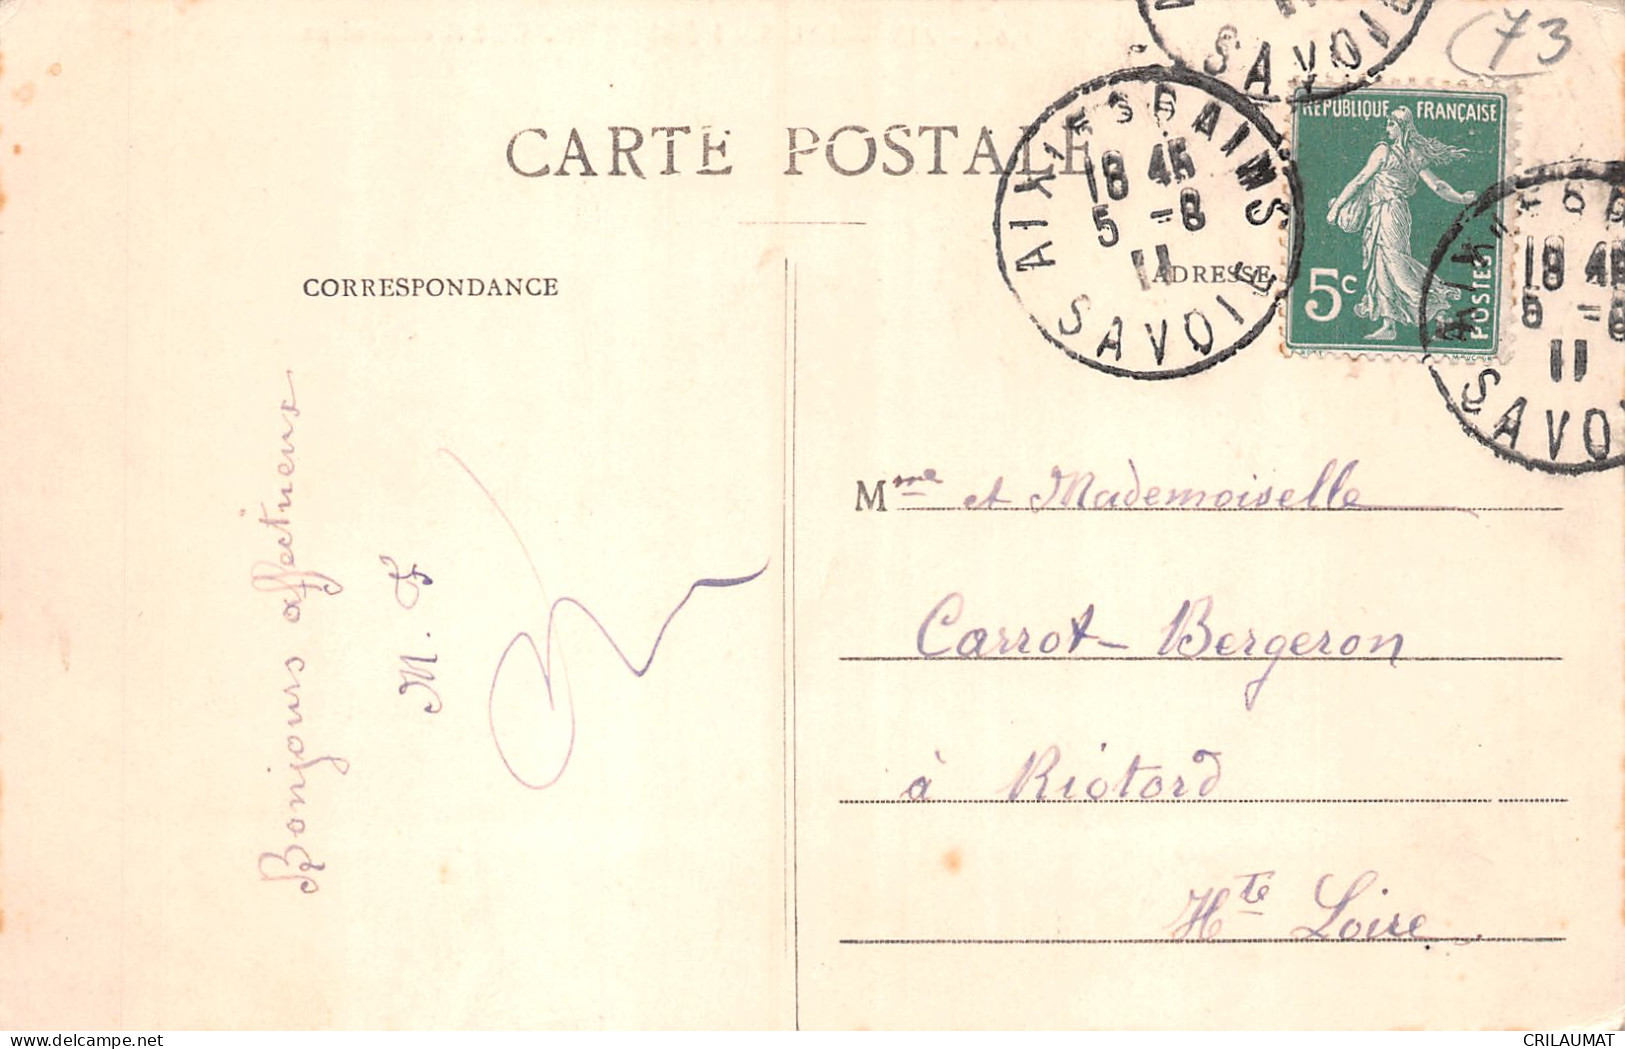 (73
SAVOIE
CARTE POSTALE
AIX LES BAINS
18 45
5 -8
11
SAVOIE
REPUBLIQUE FRANÇAISE
5c
POSTES
18 45
5 -8
11
SAVOIE
CORRESPONDANCE
ADRESSE
Bonjours affectueux
M. F
Mme et Mademoiselle
Carrot-Bergeron
à Riotord
Hte Loire
delcampe.net
CRILAUMAT